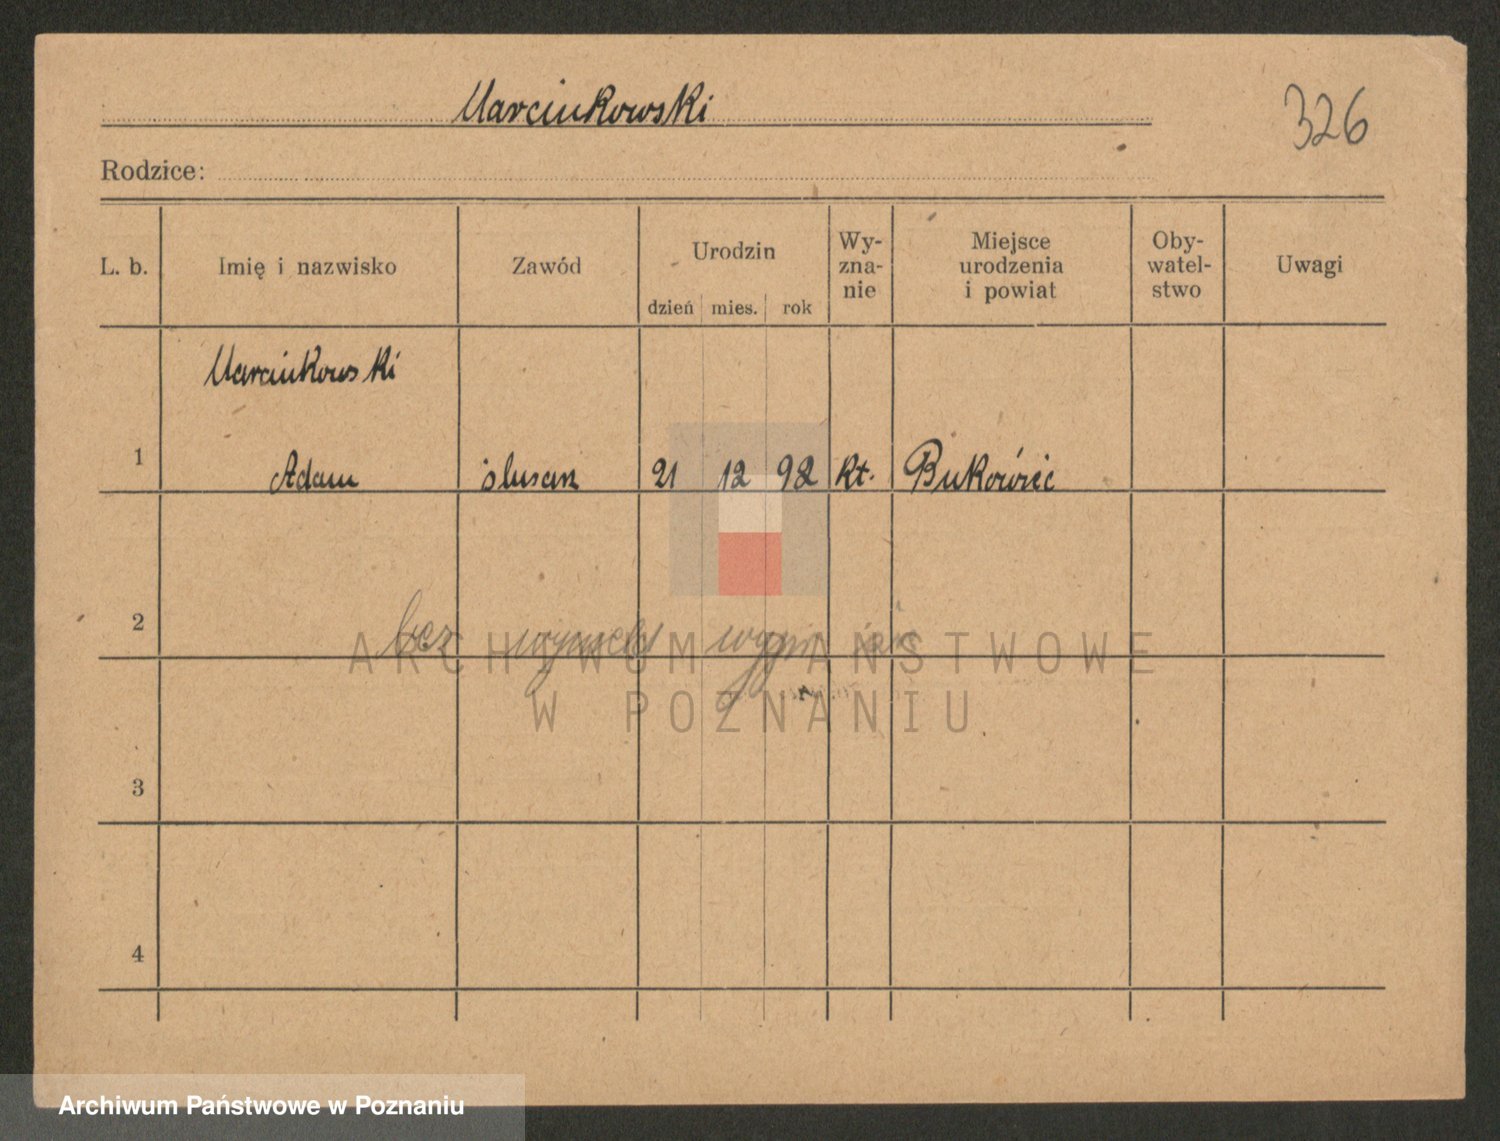 Marcinkowski
326
Rodzice:
L. b. Imię i nazwisko Zawód Urodzin dzień mies. rok Wy-zna-nie Miejsce urodzenia i powiat Oby-watel-stwo Uwagi
Marcinkowski
1 Adam ślusarz 21 12 92 kt.
2 bez
ARCHIWUM PAŃSTWOWE
W POZNANIU
3
4
Archiwum Państwowe w Poznaniu